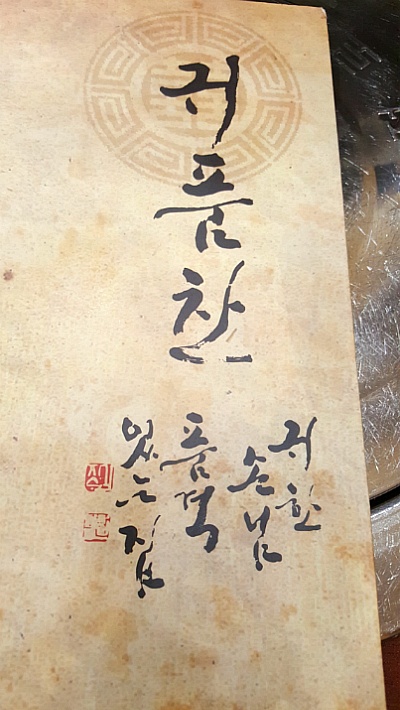 귀품찬
귀한
손님
품격
있는 집